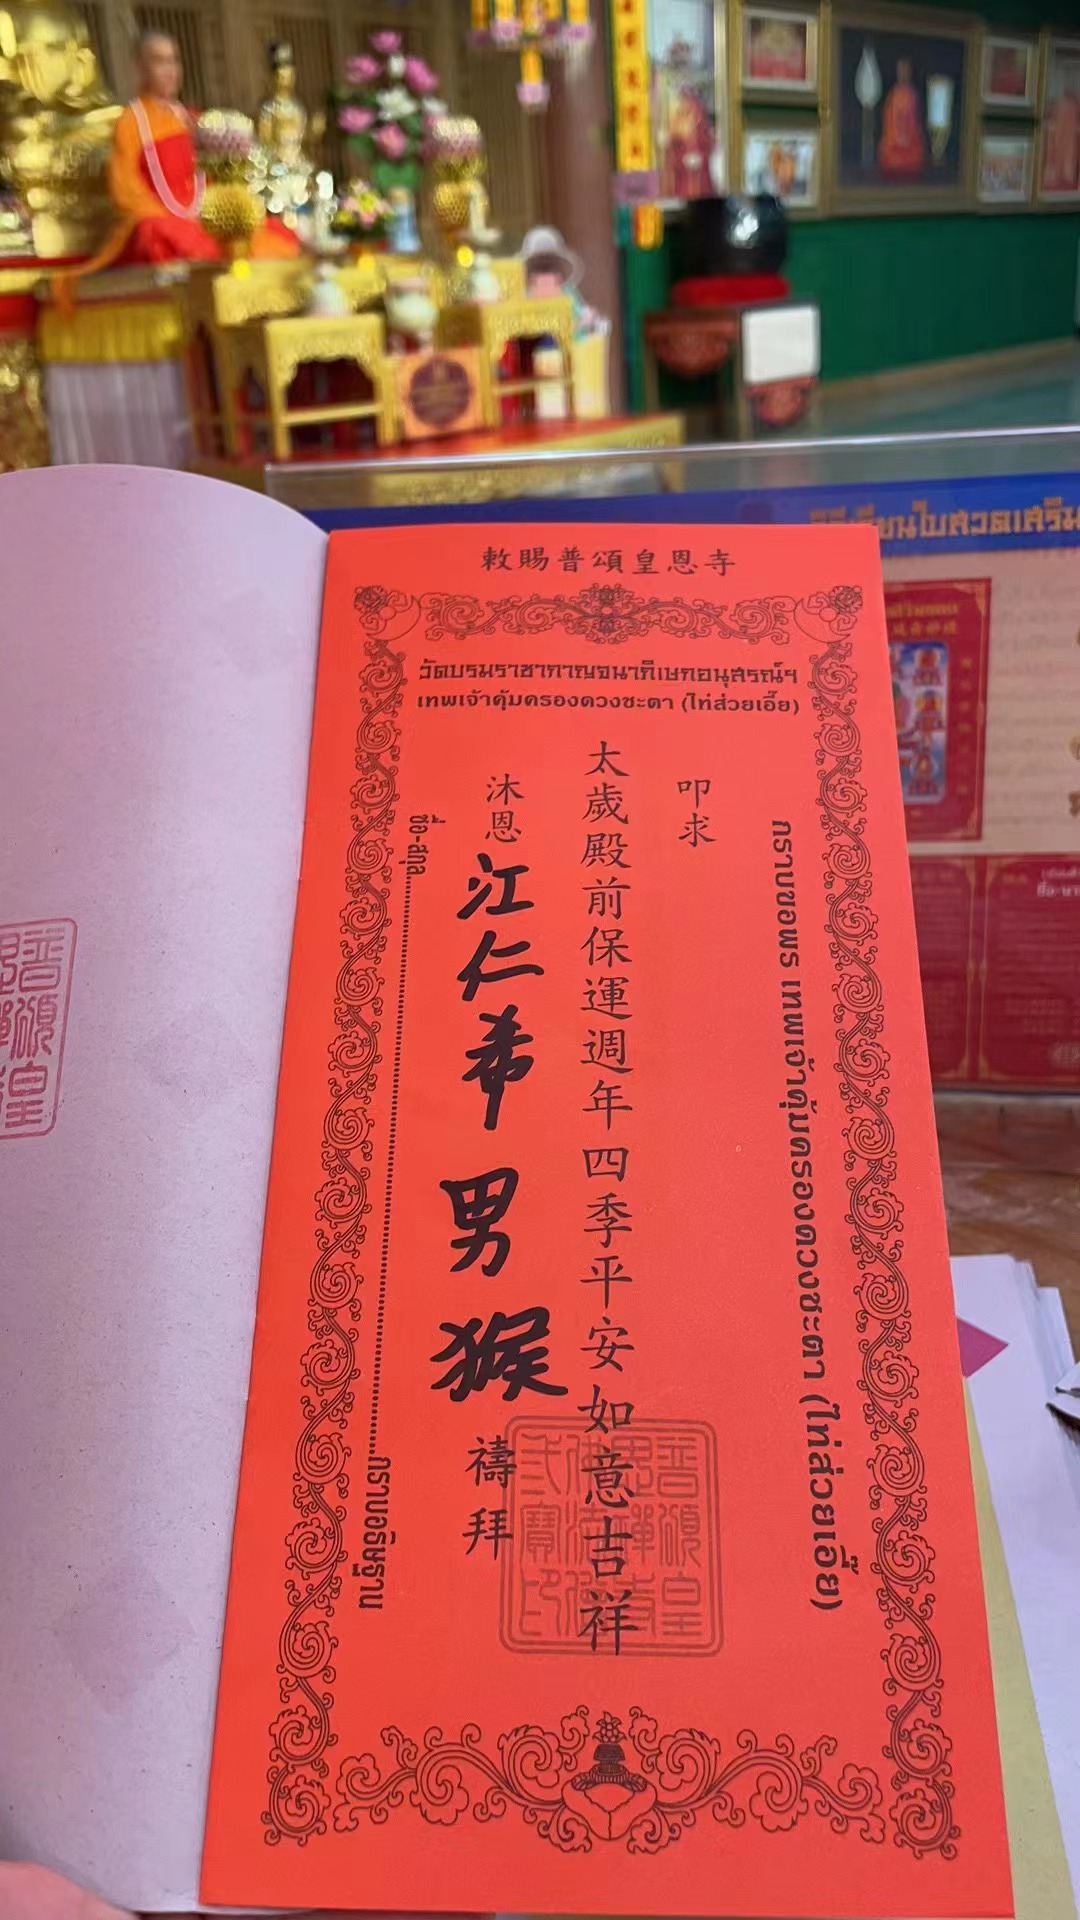 敕賜普頌皇恩寺
วัดบรมราชากาญจนาภิเษกอนุสรณ์ฯ
เทพเจ้าคุ้มครองดวงชะตา (ไท่ส่วยเอี๊ย)
กราบขอพร เทพเจ้าคุ้มครองดวงชะตา (ไท่ส่วยเอี๊ย)
叩求
太歲殿前保運週年四季平安如意吉祥
沐恩 江仁希 男 猴 禱拜
ชื่อ-สกุล............................กราบอธิษฐาน